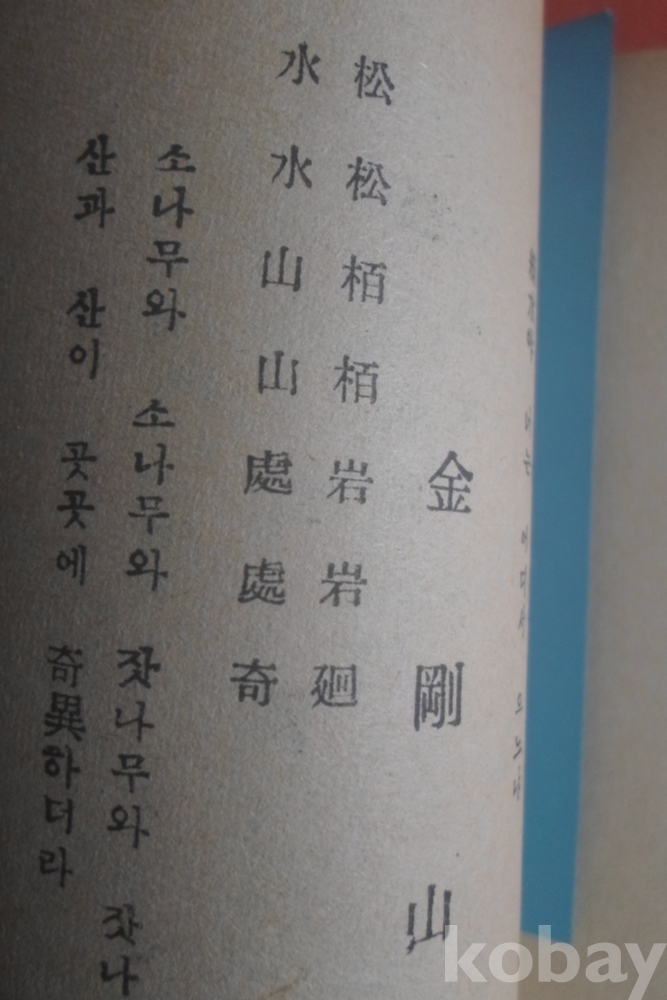 金剛山
松松栢栢岩岩廻
水水山山處處奇
소나무와 소나무와 잣나무와 잣나
산과 산이 곳곳에 奇異하더라
kobay